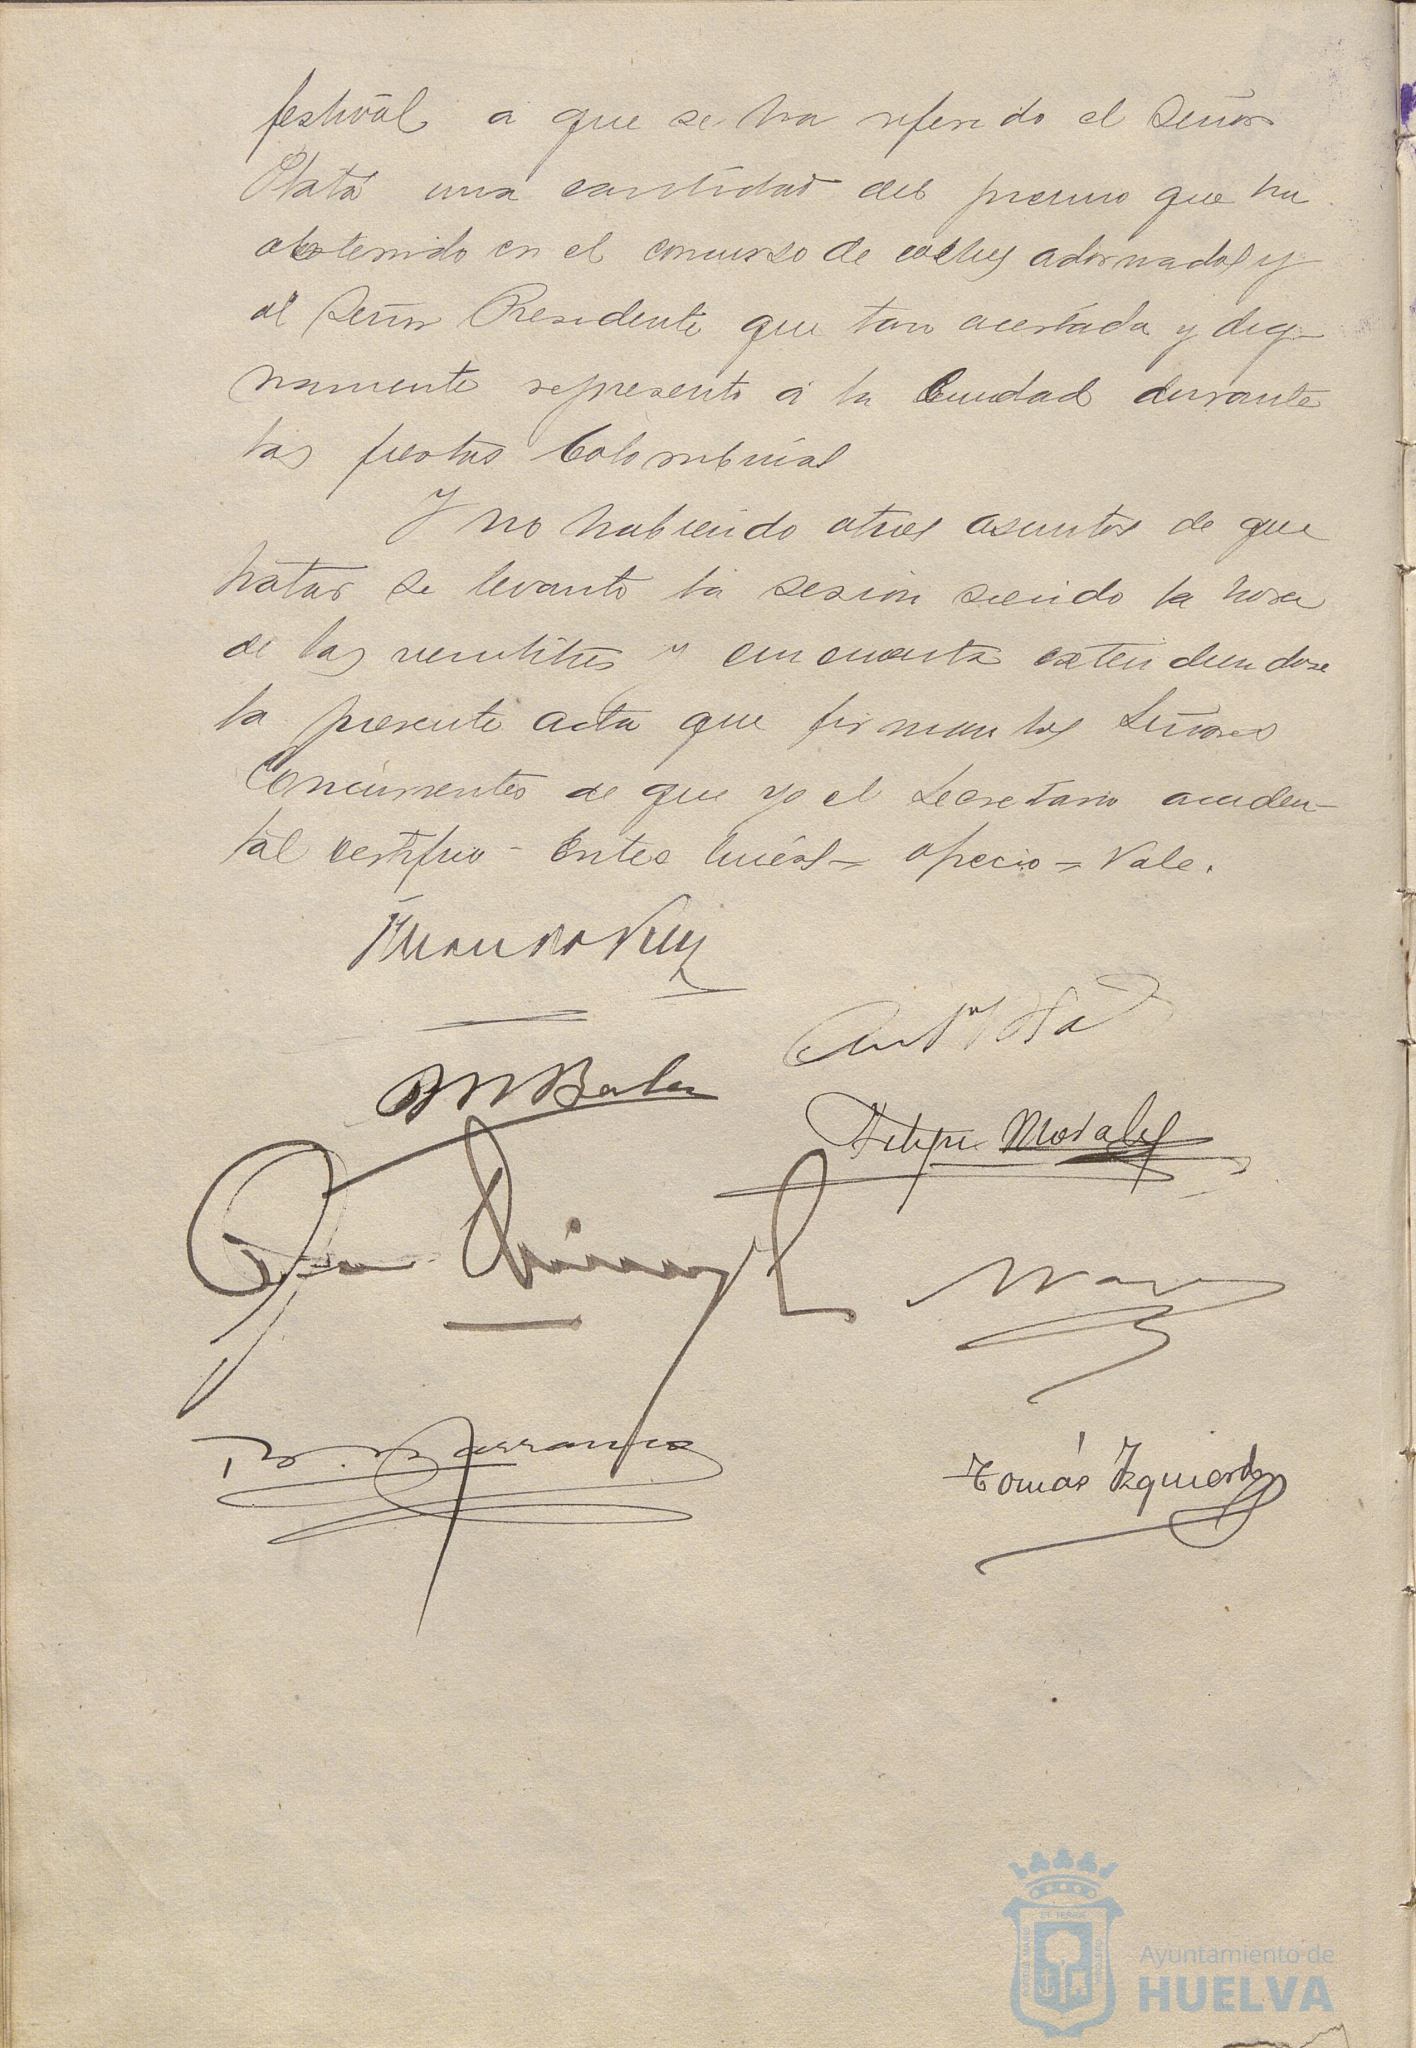 festival a que se ha referido el Señor
Plata una cantidad del premio que ha
obtenido en el concurso de coches adornados y
al Señor Presidente que tan acertada y dig-
namente represento á la Ciudad durante
las fiestas Colombinas
Y no habiendo otros asuntos de que
tratar se levanto la sesion siendo la hora
de las veintitres y cincuenta extendiendose
la presente acta que firman los Señores
Concurrentes de que yo el Secretario acciden-
tal certifico - Entre lineas = aprecio = Vale.
Felipe Morales
Tomás Izquierdo
Ayuntamiento de
HUELVA